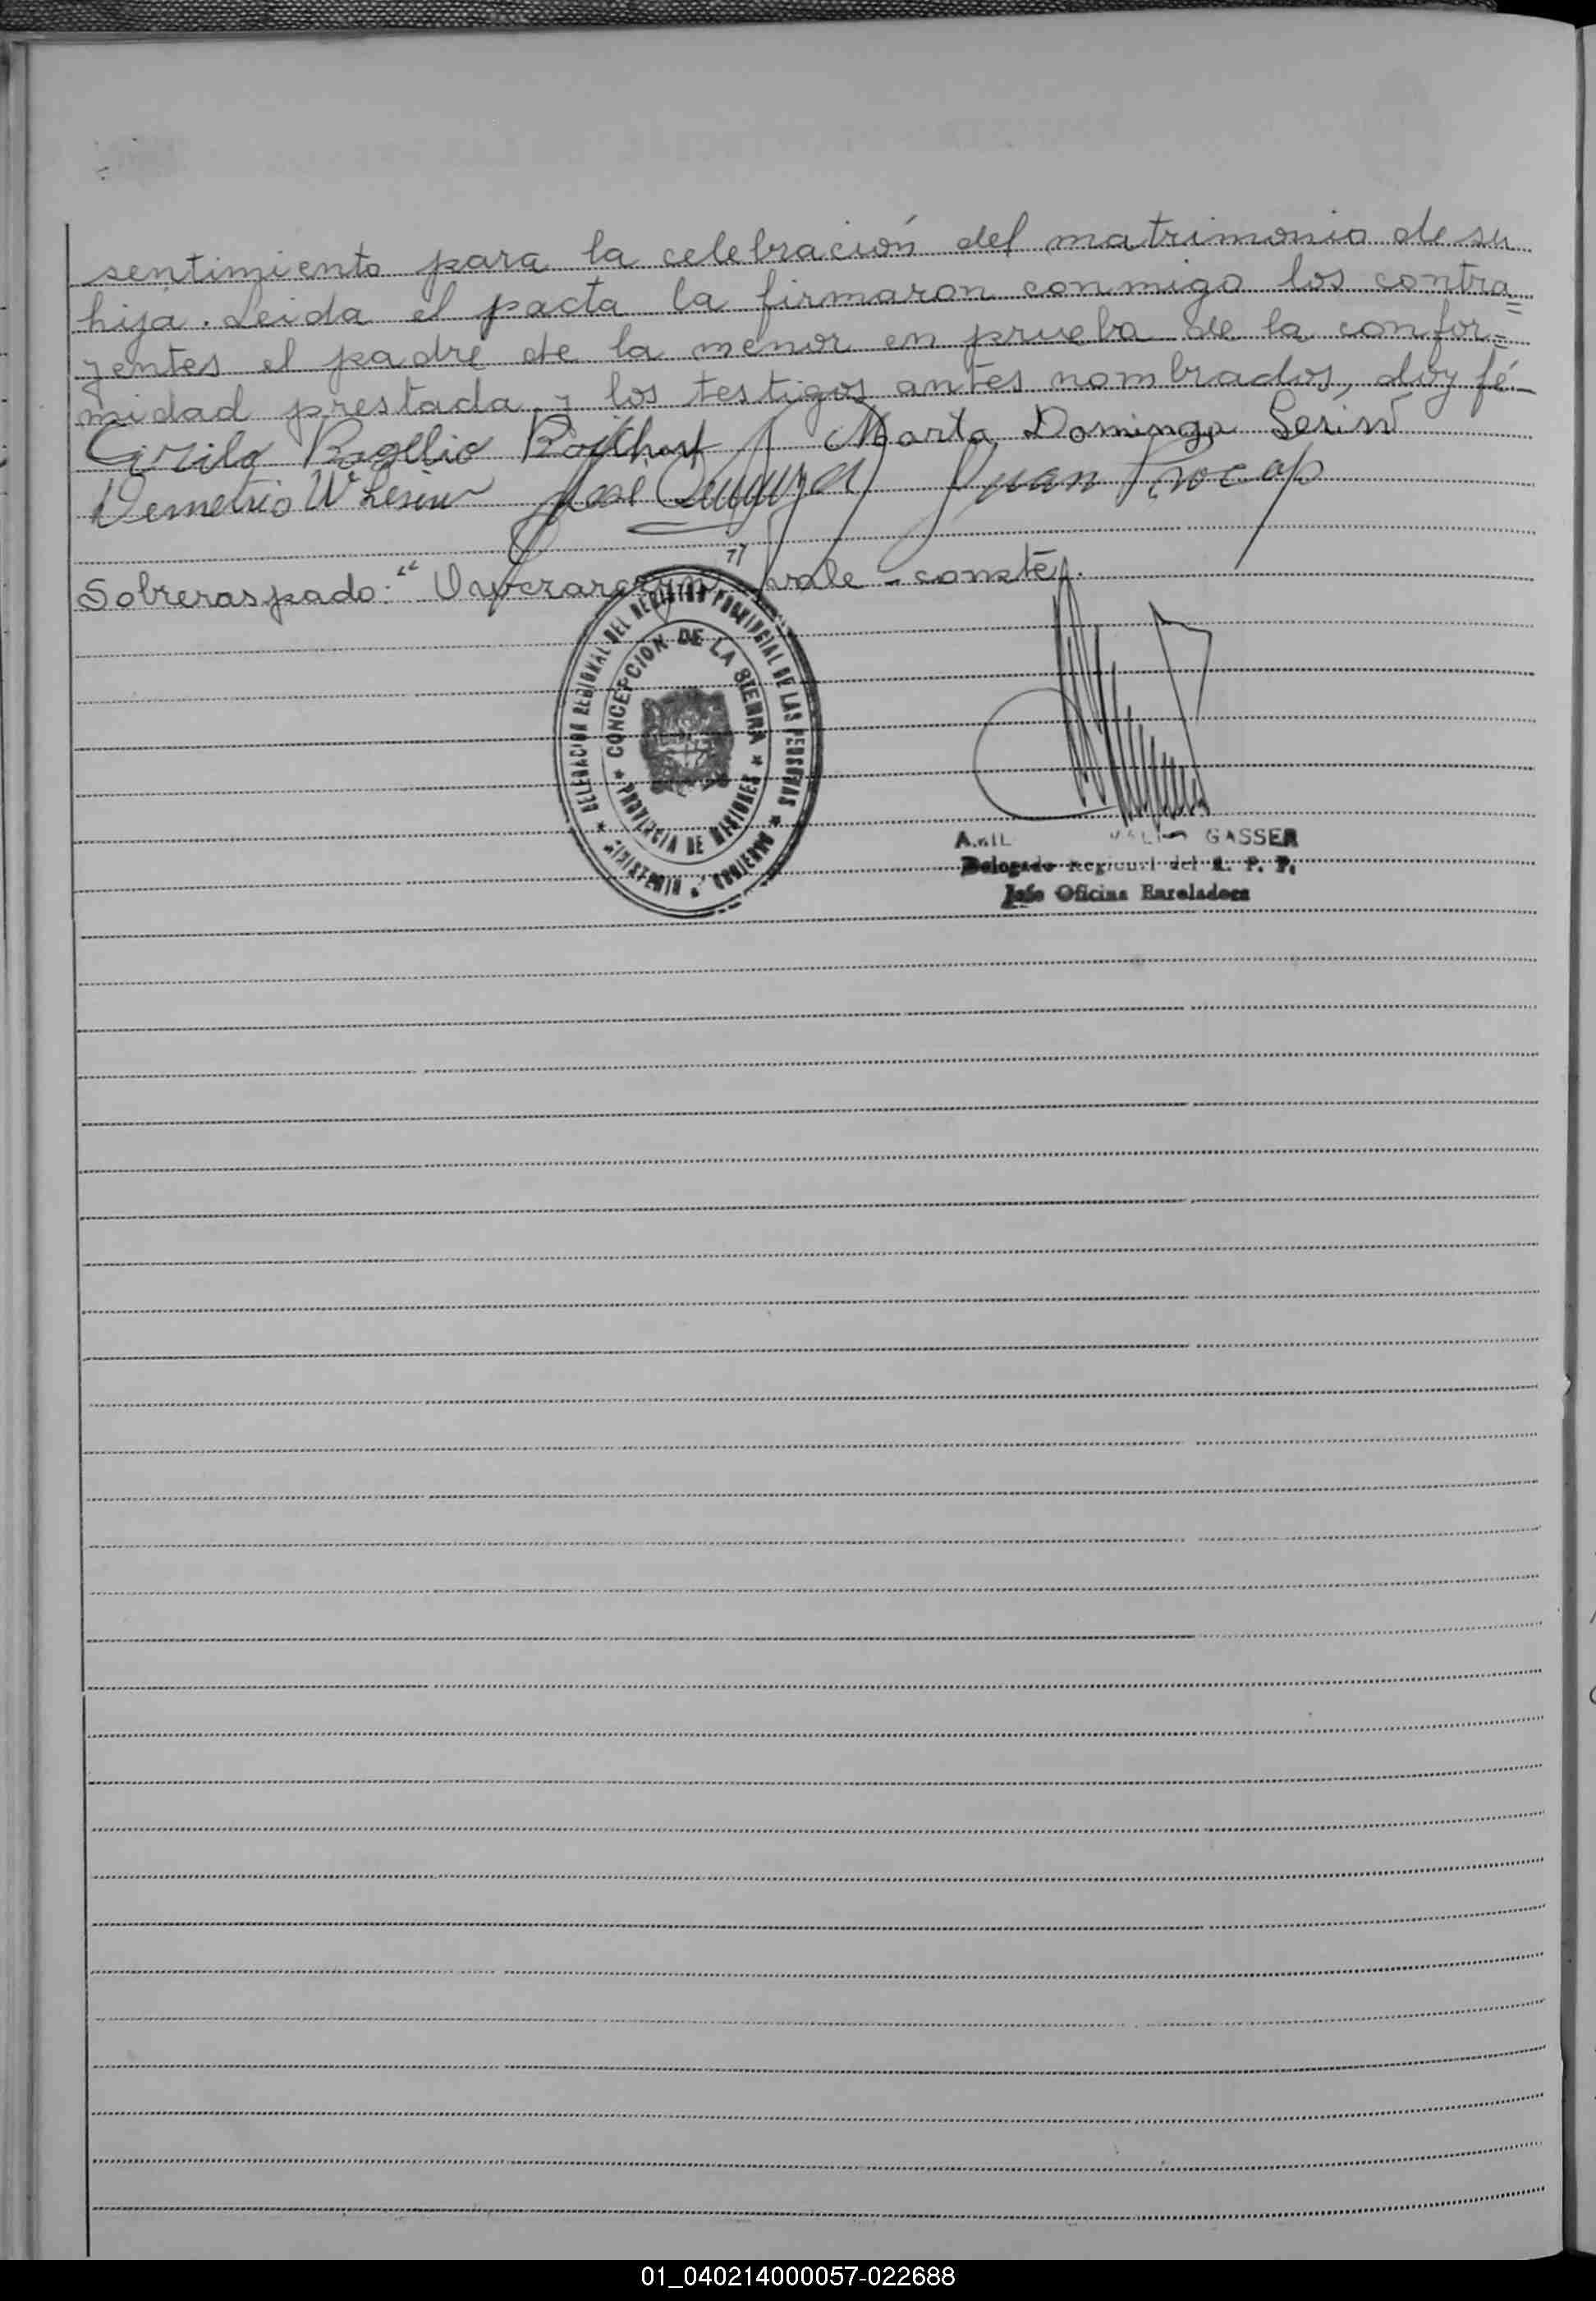 sentimiento para la celebración del matrimonio de su
hija. Leida el pacta la firmaron conmigo los contra=
yentes el padre de la menor en prueba de la confor=
midad prestada y los testigos antes nombrados, doy fé-
Cirilo Rogelio Marta Dominga Lesiw
Demetrio W Lesiw José Juan Procop
Sobreraspado: " " vale - conste.
DELEGACION REGIONAL DEL REGISTRO PROVINCIAL DE LAS PERSONAS
★ MINISTERIO GOBIERNO ★
CONCEPCION DE LA SIERRA
★ PROVINCIA DE MISIONES ★
GASSER
Delegado Regional del R. P. P.
Jefe Oficina Enroladora
01_040214000057-022688